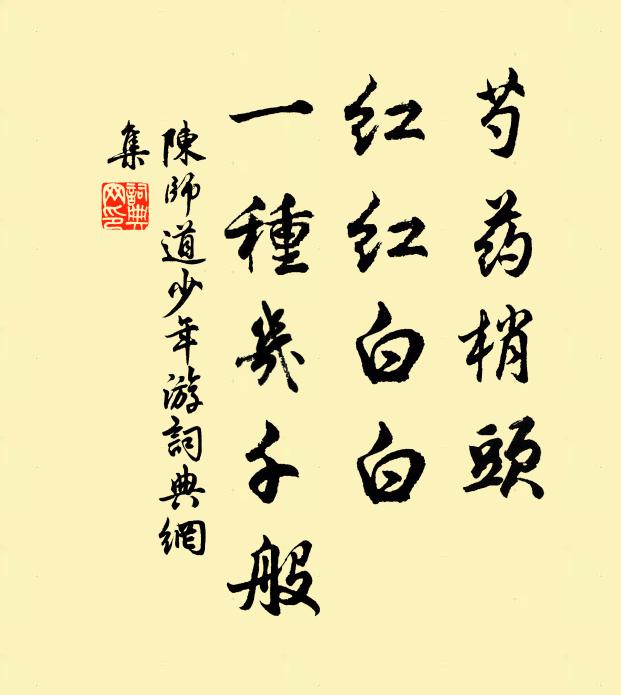 芍药梢頭
红红白白
一種幾千般
陳師道少年游詞典網
集
詞典
网印